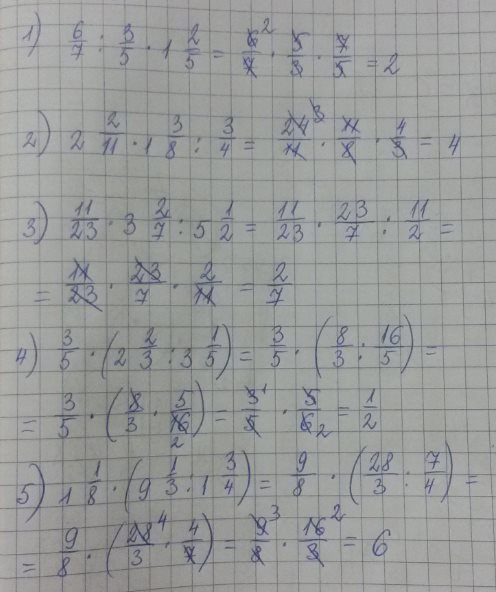 1) 6/7 : 3/5 · 1 2/5 = 6/7 · 5/3 · 7/5 = 2
2) 2 2/11 · 1 3/8 : 3/4 = 24/11 · 11/8 · 4/3 = 4
3) 11/23 · 3 2/7 : 5 1/2 = 11/23 · 23/7 : 11/2 =
= 11/23 · 23/7 · 2/11 = 2/7
4) 3/5 · (2 2/3 : 3 1/5) = 3/5 · (8/3 : 16/5) =
= 3/5 · (8/3 · 5/16) = 3/5 · 5/6 = 1/2
5) 1 1/8 · (9 1/3 : 1 3/4) = 9/8 · (28/3 : 7/4) =
= 9/8 · (28/3 · 4/7) = 9/8 · 16/3 = 6